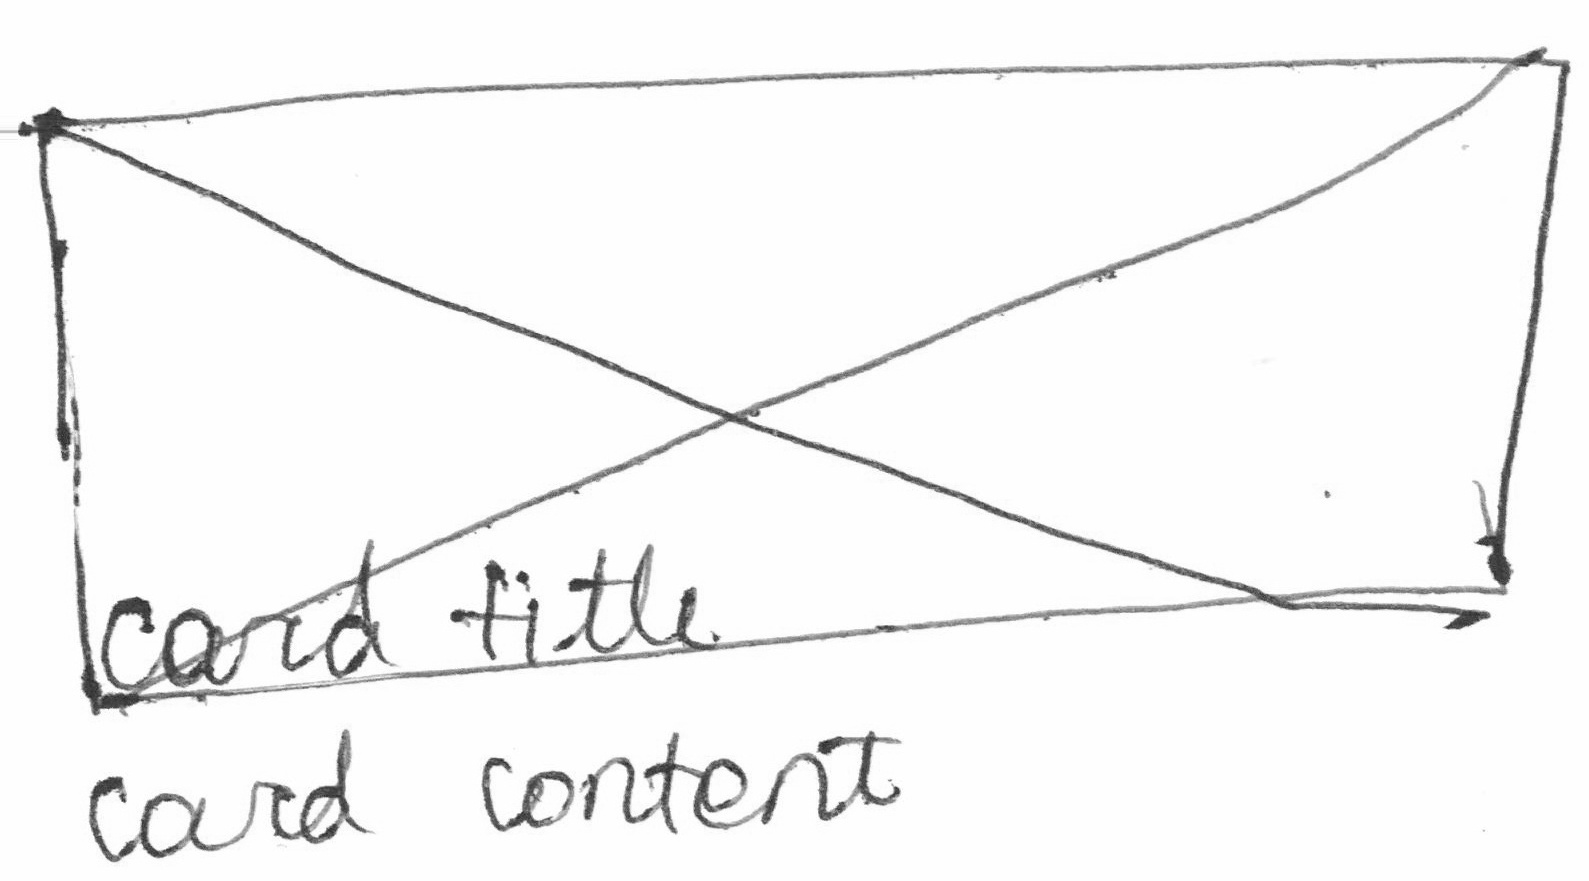 card title
card content